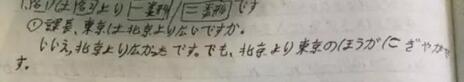 より 一番 / 三番 です
①課長、東京は北京よりないですか。
いいえ、北京よりなかったです。でも、北京より東京のほうがにぎやかで
す。